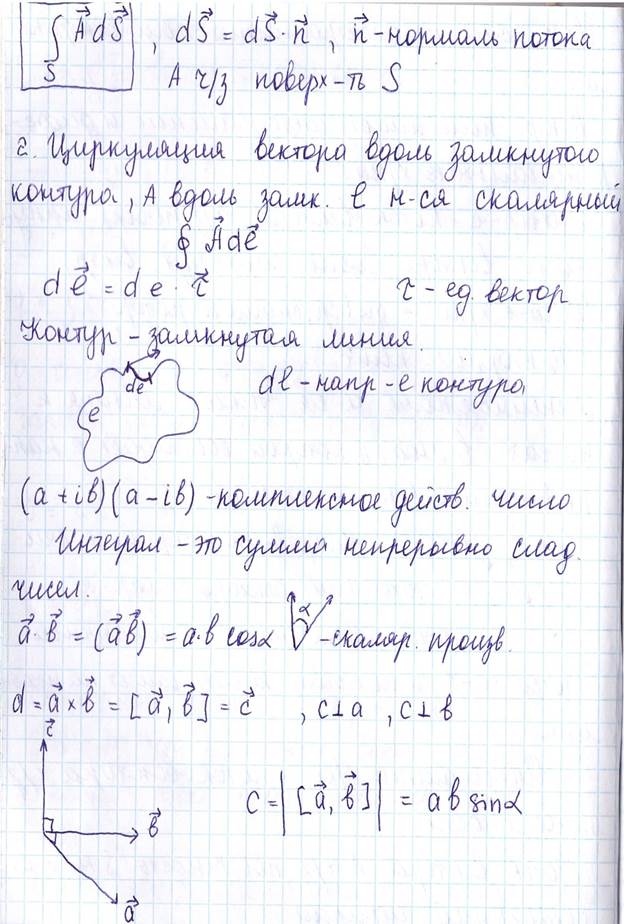 ∫_S A⃗ dS⃗ , dS⃗ = dS⃗·n⃗ , n⃗ - нормаль потока
А ч/з поверх-ть S
2. Циркуляция вектора вдоль замкнутого
контура, А вдоль замк. ℓ н-ся скалярный
∮ A⃗dℓ⃗
dℓ⃗ = dℓ · τ⃗ τ - ед. вектор
Контур - замкнутая линия.
dℓ ℓ dl - напр-е контура
(a + iв)(a - iв) - комплексное действ. число
Интеграл - это сумма непрерывно слад.
чисел.
a⃗·в⃗ = (a⃗в⃗) = a·в cosα α - скаляр. произв.
d = a⃗×в⃗ = [a⃗, в⃗] = c⃗ , c⊥a , c⊥в
c⃗
c = |[a⃗, в⃗]| = aв sinα
в⃗
a⃗